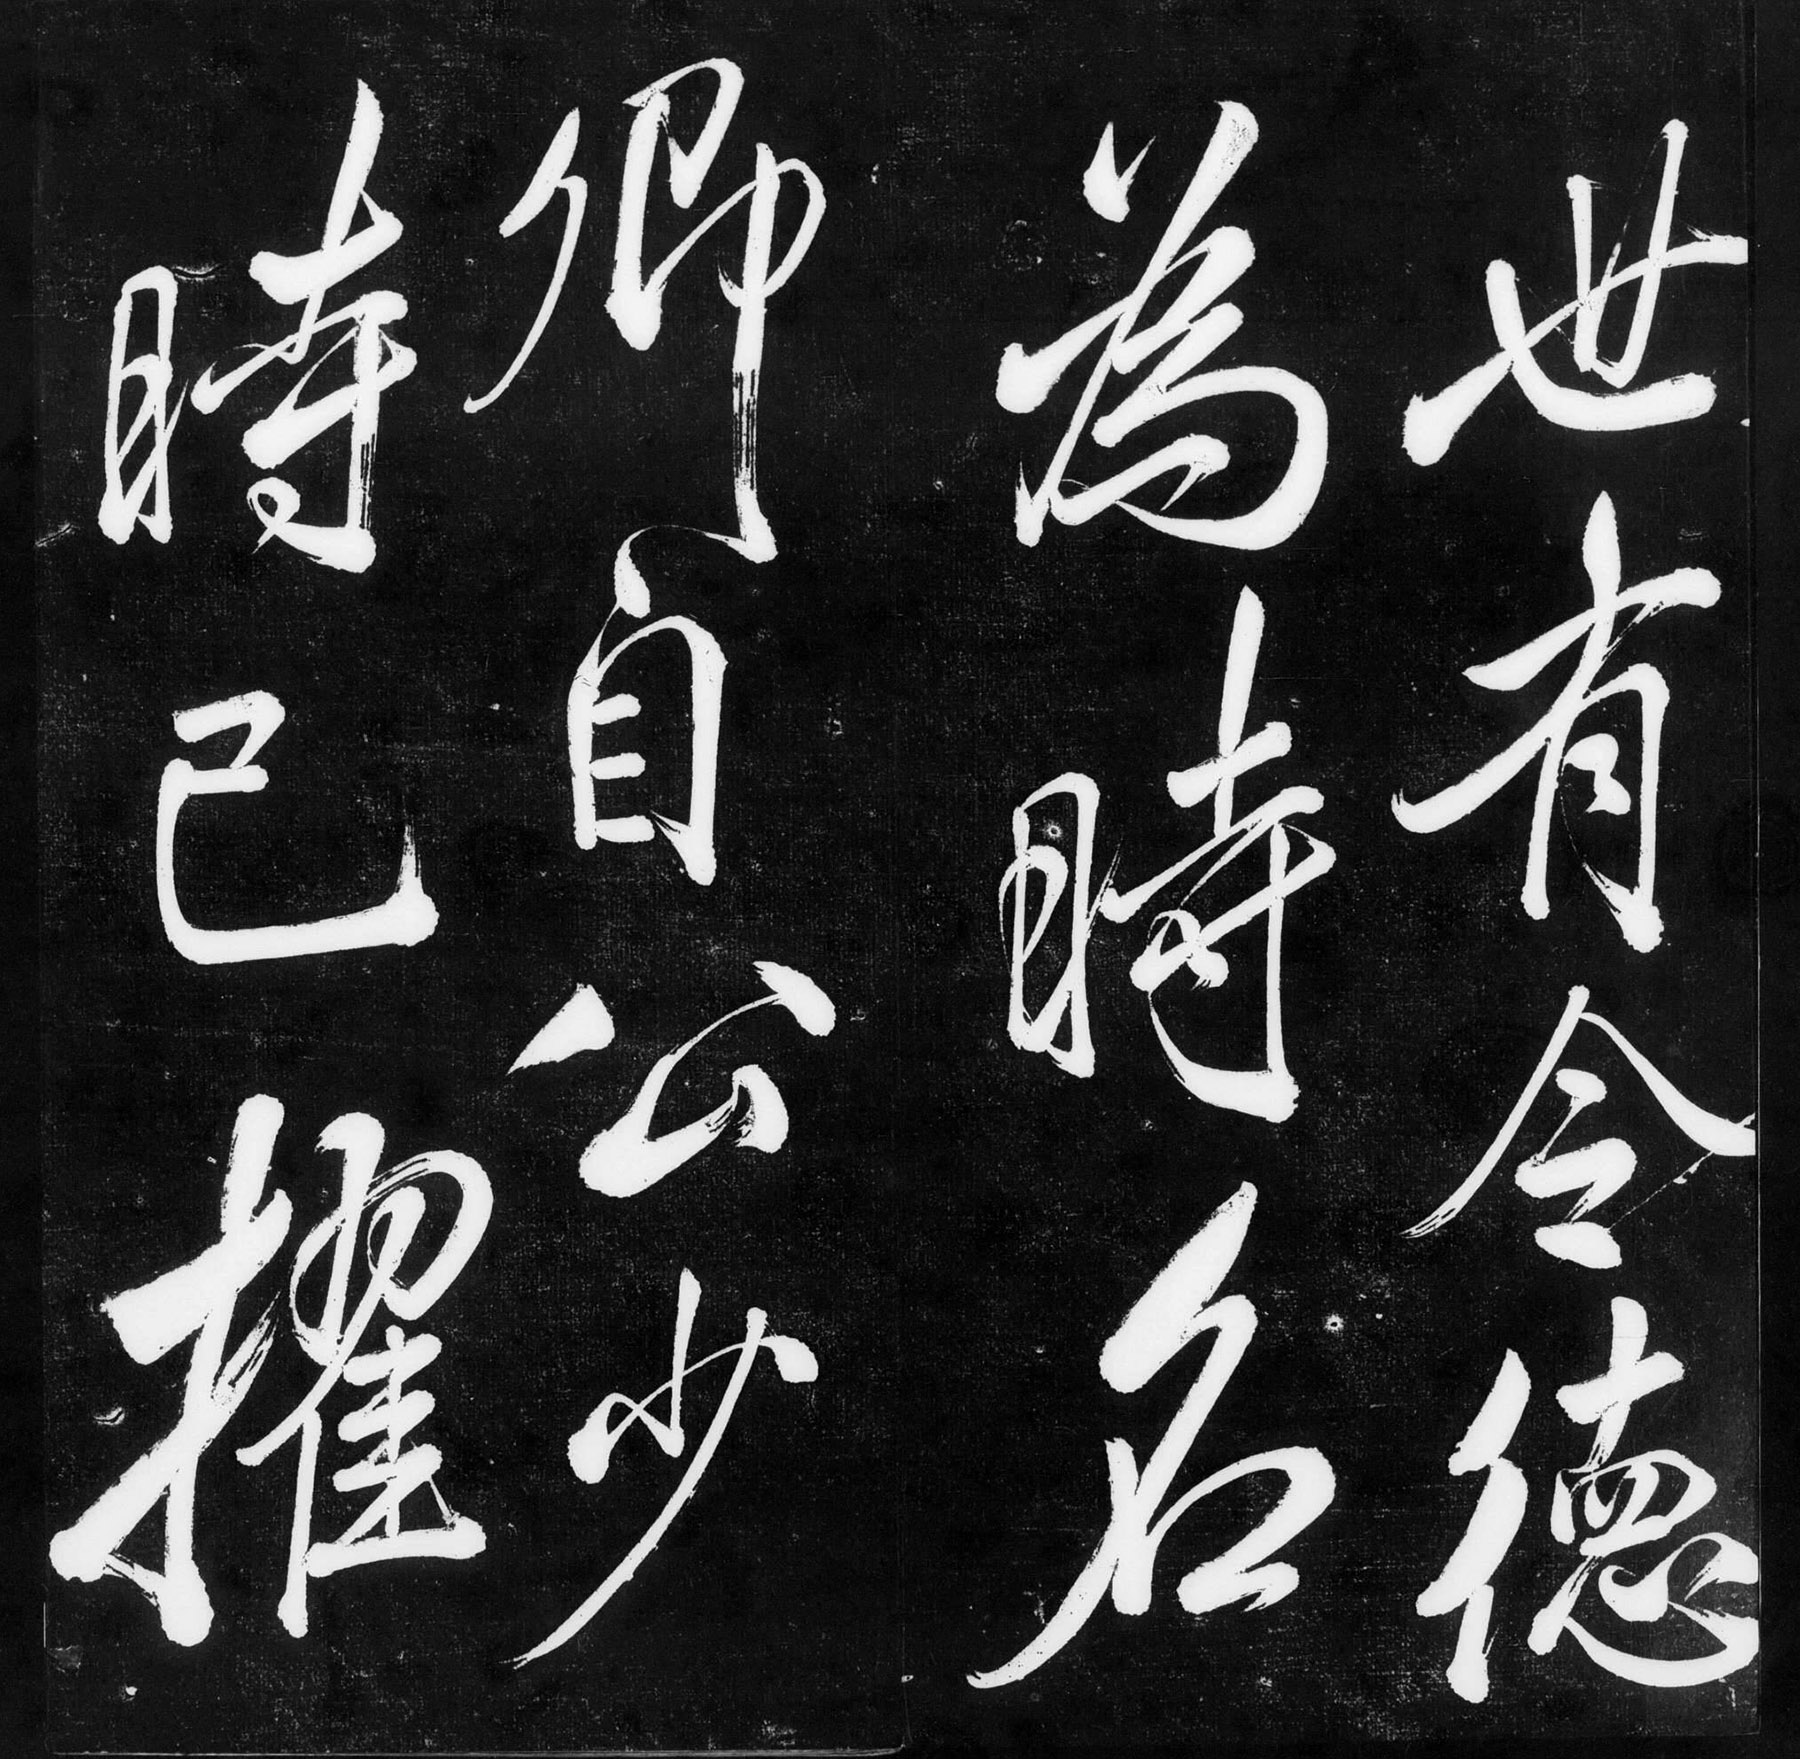 世有令德
為時名
卿自公少
時已擢